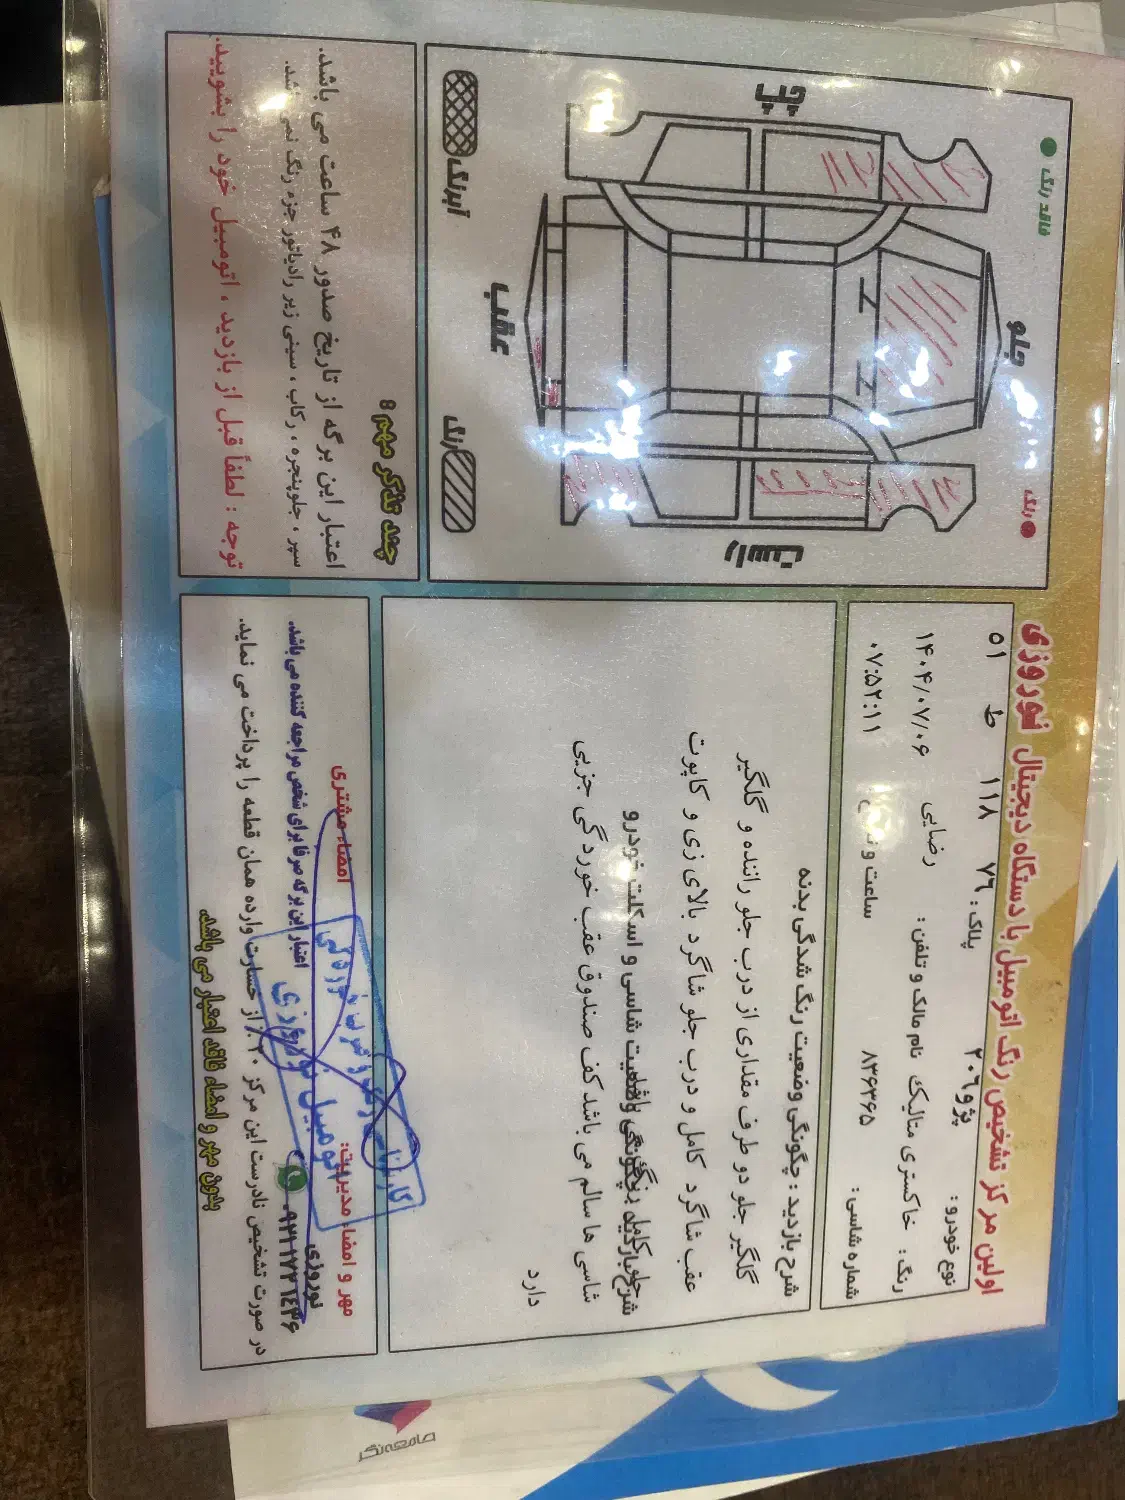 اولین مرکز تشخیص رنگ اتومبیل با دستگاه دیجیتال نوروزی
نوع خودرو : پژو۲۰۶ پلاک : ۷۶ ۱۱۸ ط ۵۱
رنگ : خاکستری متالیک نام مالک و تلفن : رضایی ۱۴۰۴/۰۷/۰۶
شماره شاسی : ۸۳۶۳۶۵ ساعت و ۰۷:۵۲:۱۱
شرح بازدید : چگونگی وضعیت رنگ شدگی بدنه
گلگیر جلو دو طرف مقداری از درب جلو راننده و گلگیر
عقب شاگرد کامل و درب جلو شاگرد بالای زی و کاپوت
شرح بازدید : چگونگی وضعیت شاسی و اسکلت خودرو
شاسی ها سالم می باشد کف صندوق عقب خوردگی جزیی
دارد
فاقد رنگ
جلو
رنگ
چپ
راست
عقب
آبرنگ
رنگ
چند تذکر مهم :
اعتبار این برگه از تاریخ صدور ۴۸ ساعت می باشد.
سپر ، جلوپنجره ، رکاب ، سینی زیر رادیاتور جزء رنگ
توجه : لطفاً قبل از بازدید ، اتومبیل خود را بشویید.
مهر و امضاء مدیریت: امضاء مشتری
نوروزی
اعتبار این برگه صرفا برای شخص مراجعه کننده می باشد.
در صورت تشخیص نادرست این مرکز ۲۰٪ از خسارت وارده همان قطعه را پرداخت می نماید.
بدون مهر و امضاء فاقد اعتبار می باشد.